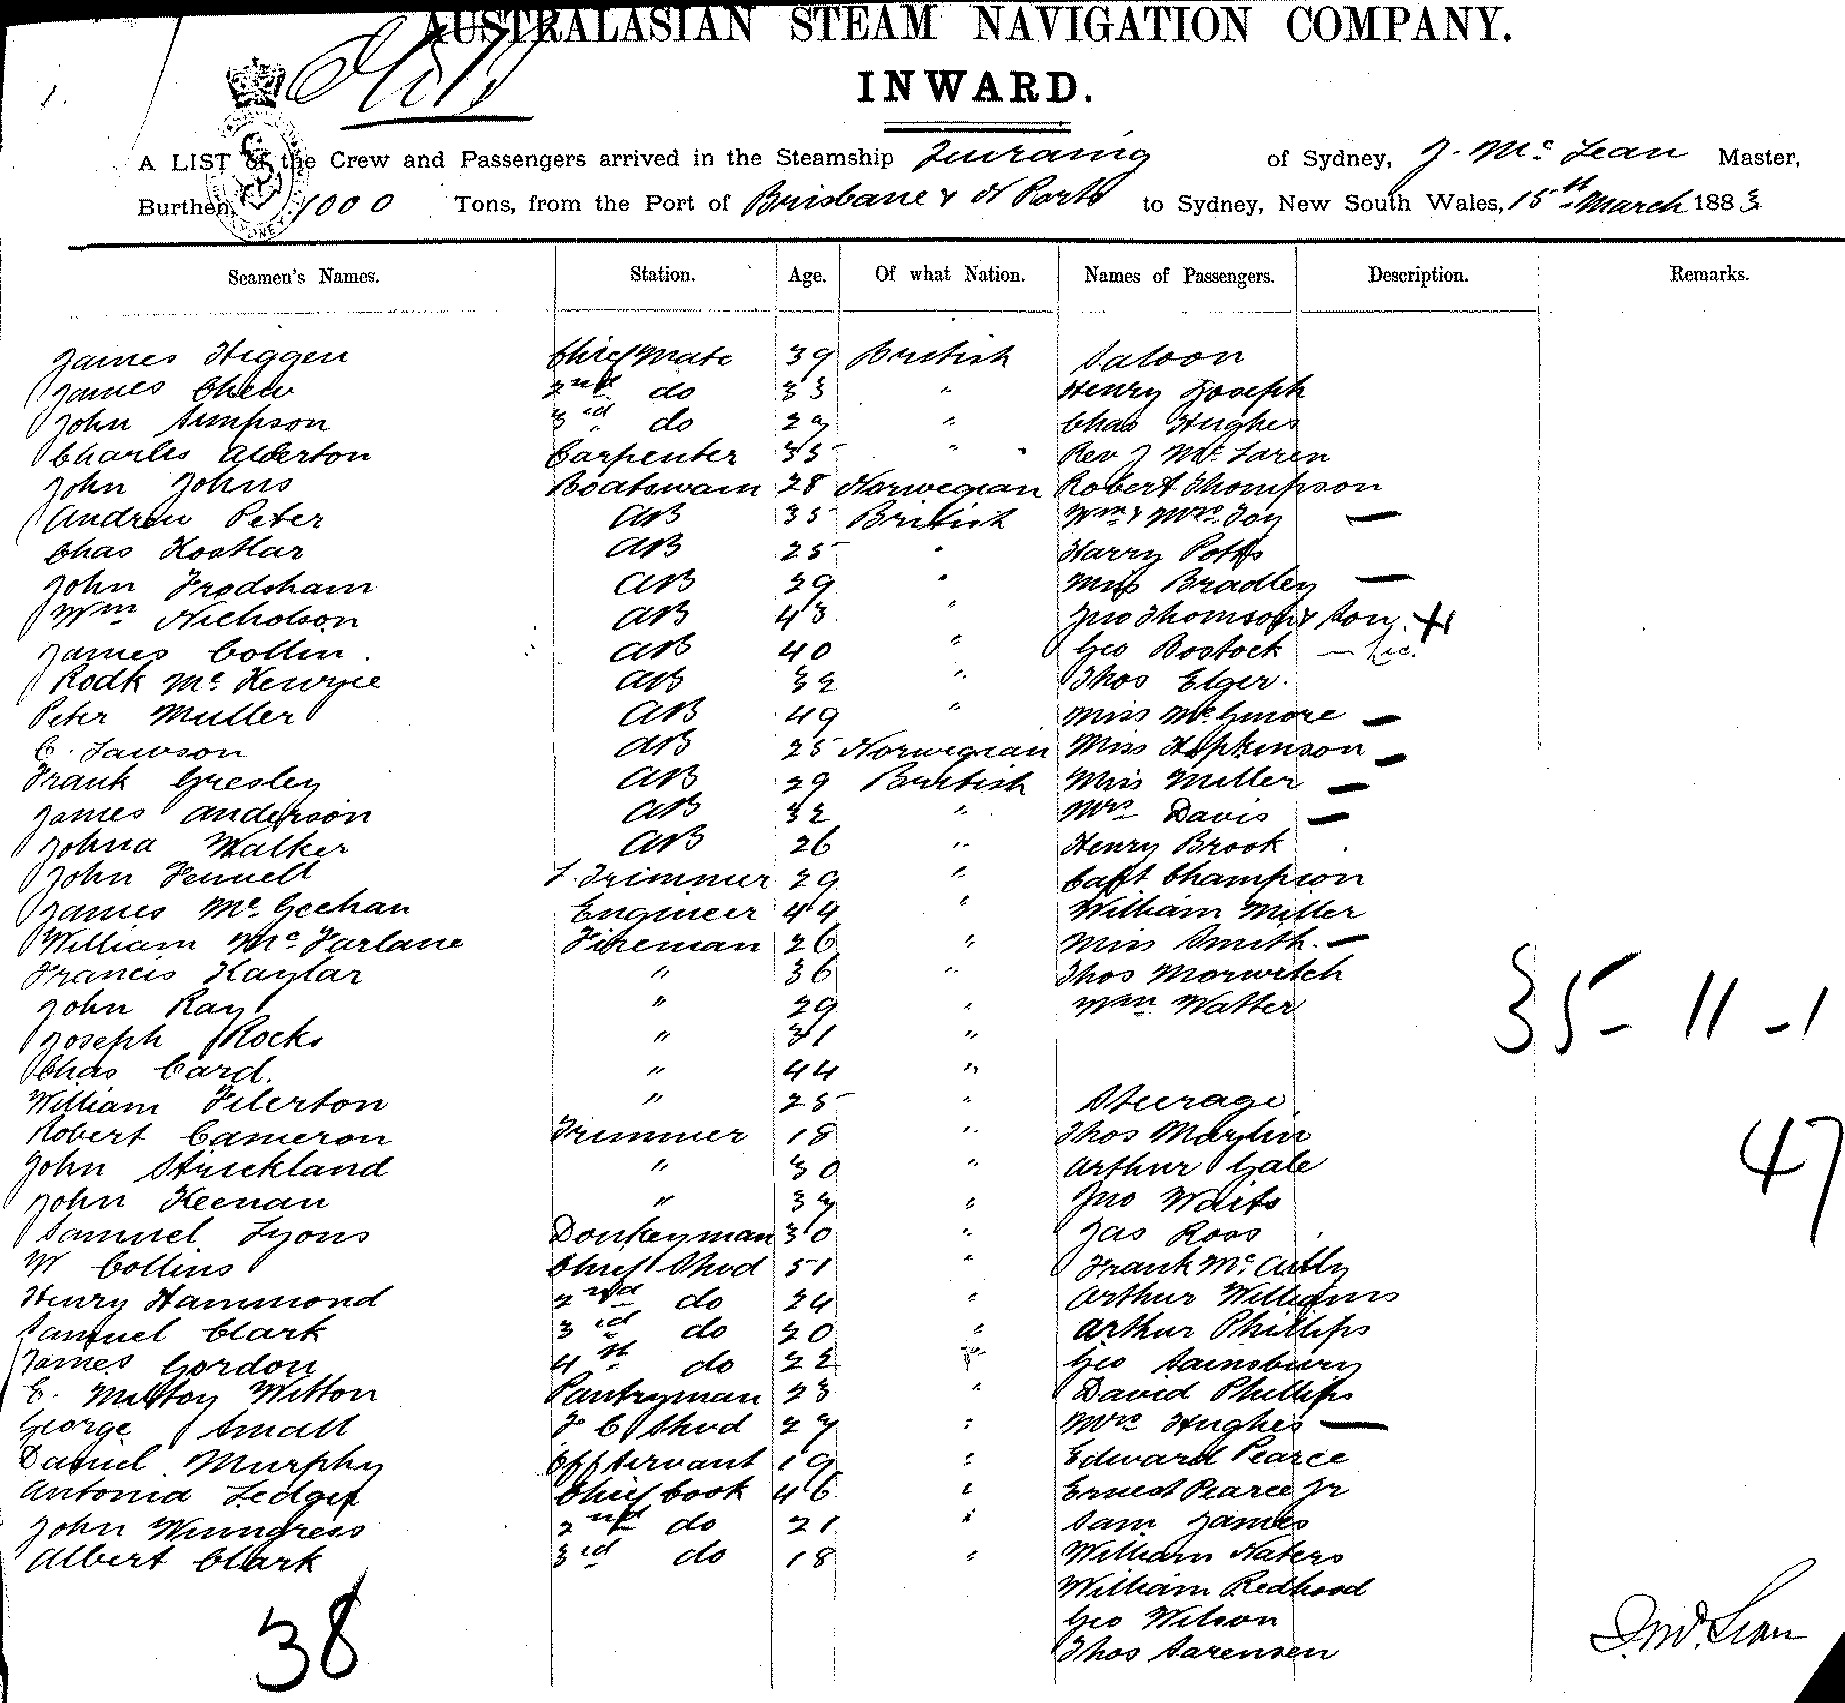 AUSTRALASIAN STEAM NAVIGATION COMPANY.
INWARD.
A LIST of the Crew and Passengers arrived in the Steamship of Sydney, J. McLean Master,
Burthen, 1000 Tons, from the Port of Brisbane & N Ports to Sydney, New South Wales, 15th March 1883
Seamen's Names. Station. Age. Of what Nation. Names of Passengers. Description. Remarks.
James Higgen Chief Mate 39 British Saloon
James Chew 2nd do 33 " Henry Joseph
John Simpson 3rd do 27 " Chas Hughes
Charles Alderton Carpenter 35 " Rev J McLaren
John Johns Boatswain 28 Norwegian Robert Thompson
Andrew Peter AB 35 British Wm & Mrs Toy —
Chas Kosttar AB 25 " Harry Potts
John Frodsham AB 29 " Miss Bradley —
Wm Nicholson AB 43 " Jno Thomson & Son
James Collin. AB 40 " Geo Bostock
Rodk McKenzie AB 32 " Thos Elger.
Peter Muller AB 49 " Miss —
C. Lawson AB 25 Norwegian Miss Hopkinson —
Frank Gresley AB 29 British Miss Miller —
James Anderson AB 32 " Mrs Davis —
Walker AB 26 " Henry Brook
John Fennell L. Trimmer 29 " Capt Champion
James McGeehan Engineer 44 " William Miller
William McFarlane Fireman 26 " Miss Smith. —
Francis Kaylar " 36 " Thos Morwitch
John Ray " 29 " Wm Watter
35 - 11 - 1
Joseph Rocks " 31 "
Chas Card. " 44 "
William Filerton " 25 " Steerage
Robert Cameron Trimmer 18 " Thos Martin
47
John Strickland " 30 " Arthur Gale
John Keenan " 37 " Jno Waits
Samuel Lyons Donkeyman 30 " Jas Ross
W Collins Chief Stwd 51 " Frank McCully
Henry Hammond 2nd do 24 " Arthur Williams
Samuel Clark 3rd do 20 " Arthur Phillips
James Gordon 4th do 22 " Geo Sainsbury
C. Witton Pantryman 23 " David Phillips
George Small F C Stwd 27 " Mrs Hughes —
Daniel Murphy Off Servant 19 " Edward Pearce
Antonia Chief Cook 46 " Ernest Pearce Jr
John Winngress 2nd do 21 " Sam James
Albert Clark 3rd do 18 " William Naters
William Redhood
Geo Wilson
38
Thos Sarensen
J McLean